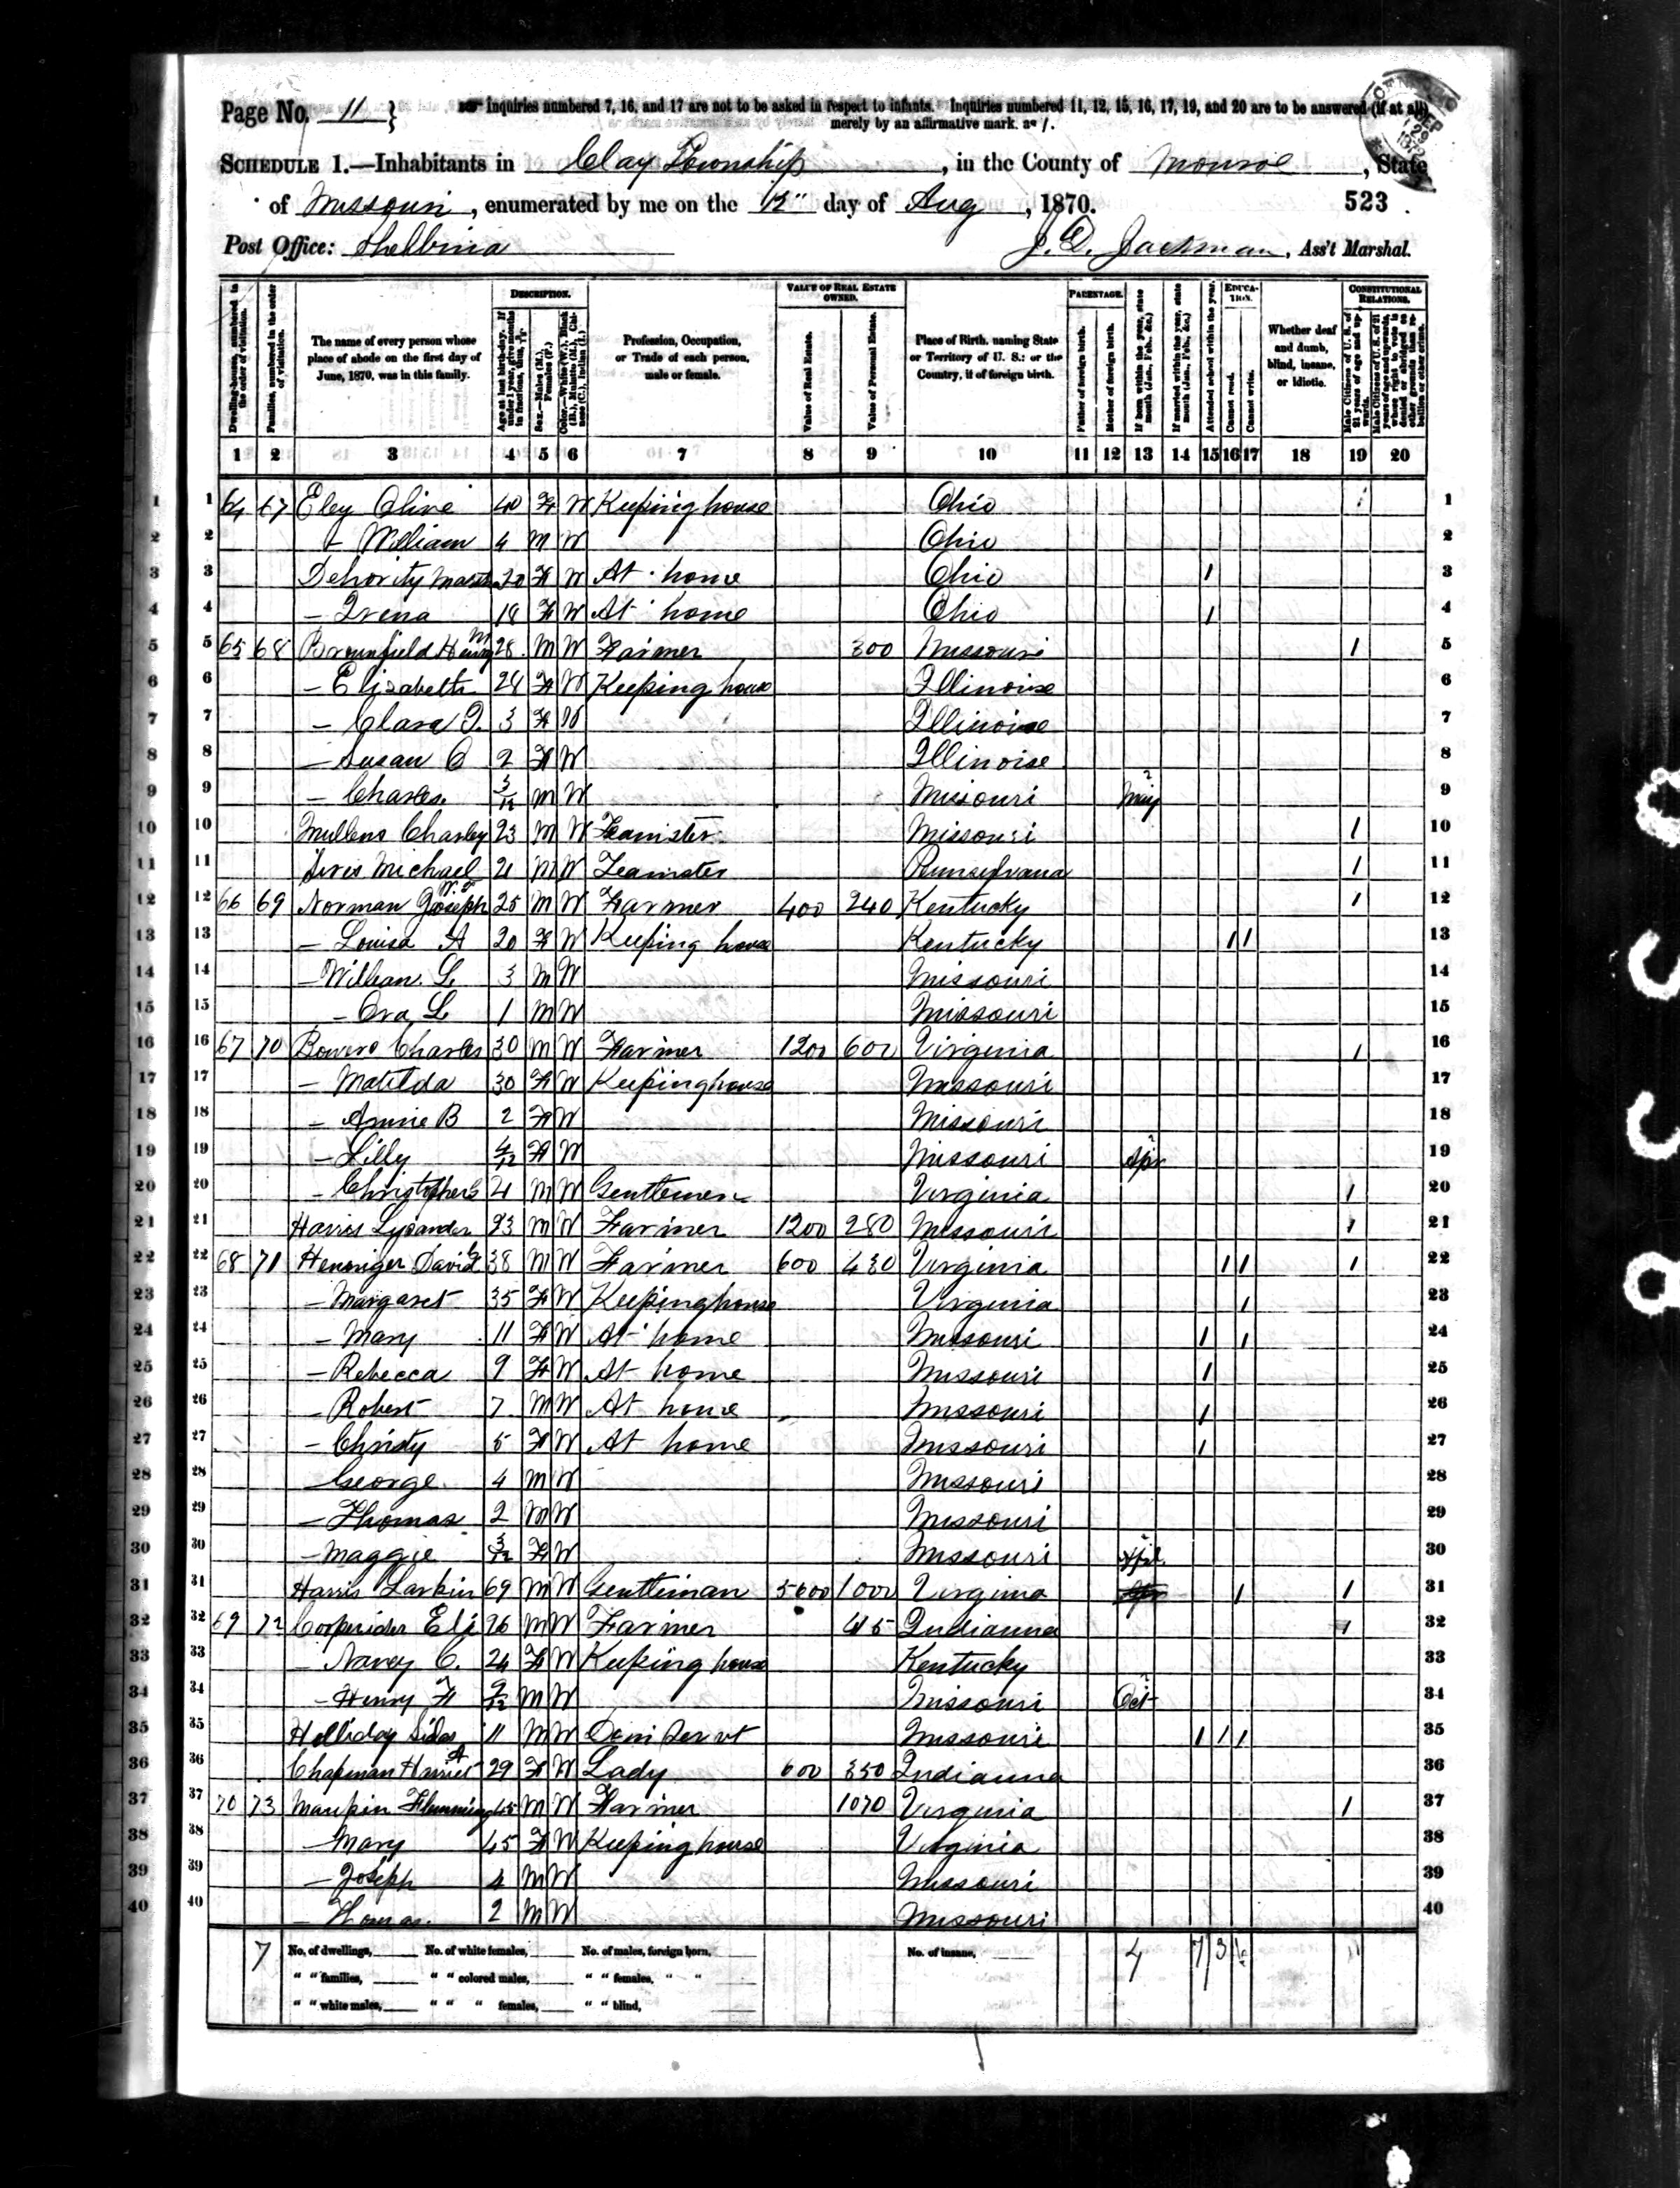 Page No. 11 } Inquiries numbered 7, 16, and 17 are not to be asked in respect to infants. Inquiries numbered 11, 12, 15, 16, 17, 19, and 20 are to be answered (if at all)
merely by an affirmative mark. as /.
SCHEDULE 1.—Inhabitants in Clay Township, in the County of Monroe, State
of Missouri, enumerated by me on the 12" day of Aug, 1870. 523
Post Office: Shelbina J. D. Jackman, Ass't Marshal.
Dwelling-houses, numbered in the order of visitation.
Families, numbered in the order of visitation.
The name of every person whose place of abode on the first day of June, 1870, was in this family.
DESCRIPTION.
Age at last birth-day. If under 1 year, give months in fractions, thus, 3/12
Sex.—Males (M.), Females (F.)
Color.—White (W.), Black (B.), Mulatto (M.), Chinese (C.), Indian (I.)
Profession, Occupation, or Trade of each person, male or female.
VALUE OF REAL ESTATE OWNED.
Value of Real Estate.
Value of Personal Estate.
Place of Birth, naming State or Territory of U. S.; or the Country, if of foreign birth.
PARENTAGE.
Father of foreign birth.
Mother of foreign birth.
If born within the year, state month (Jan., Feb., &c.)
If married within the year, state month (Jan., Feb., &c.)
Attended school within the year.
EDUCATION.
Cannot read.
Cannot write.
Whether deaf and dumb, blind, insane, or idiotic.
CONSTITUTIONAL RELATIONS.
Male Citizens of U. S. of 21 years of age and upwards.
Male Citizens of U. S. of 21 years of age and upwards, whose right to vote is denied or abridged on other grounds than rebellion or other crime.
1 2 3 4 5 6 7 8 9 10 11 12 13 14 15 16 17 18 19 20
1 64 67 Eley Olive 40 F W Keeping house Ohio 1
2 — William 4 M W Ohio 2
3 Dehority 20 F W At home Ohio / 3
4 — Irena 18 F W At home Ohio / 4
5 65 68 Brownfield Henry M 28 M W Farmer 300 Missouri / 5
6 — Elizabeth 24 F W Keeping house Illinoise 6
7 — Clara J. 3 F W Illinoise 7
8 — Susan C 2 F W Illinoise 8
9 — Charles. 3/12 M W Missouri May 9
10 Mullens Charley 23 M W Teamster Missouri / 10
11 Michael 21 M W Teamster Pennsylvana / 11
12 66 69 Norman Joseph 25 M W Farmer 400 240 Kentucky / 12
13 — Louisa A 20 F W Keeping house Kentucky / / 13
14 — William. L 3 M W Missouri 14
15 — Ora L 1 M W Missouri 15
16 67 70 Bowers Charles 30 M W Farmer 1200 600 Virginia / 16
17 — Matilda 30 F W Keeping house Missouri 17
18 — Annie B 2 F W Missouri 18
19 — Lilly 4/12 F W Missouri Apr 19
20 — Christopher 21 M W Gentlemen Virginia / 20
21 Harris Lysander 23 M W Farmer 1200 280 Missouri / 21
22 68 71 Henninger David 38 M W Farmer 600 430 Virginia / / / 22
23 — Margaret 35 F W Keeping house Virginia / 23
24 — Mary 11 F W At home Missouri / / 24
25 — Rebecca 9 F W At home Missouri / 25
26 — Robert 7 M W At home Missouri / 26
27 — Christy 5 F W At home Missouri / 27
28 — George 4 M W Missouri 28
29 — Thomas 2 M W Missouri 29
30 — Maggie 3/12 F W Missouri Apl. 30
31 Harris Larkin 69 M W Gentleman 5600 1000 Virginia / / 31
32 69 72 Cooperider Eli 26 M W Farmer 415 Indianna / 32
33 — Nancy C. 24 F W Keeping house Kentucky 33
34 — Henry F 9/12 M W Missouri Oct 34
35 Holliday Silas 11 M W Dom Servt Missouri / / / 35
36 Chapman Harriet A 29 F W Lady 600 350 Indianna 36
37 70 73 Maupin Flemming 45 M W Farmer 1070 Virginia / 37
38 — Mary 45 F W Keeping house Virginia 38
39 — Joseph 4 M W Missouri 39
40 — Thomas. 2 M W Missouri 40
7 No. of dwellings, No. of white females, No. of males, foreign born, No. of insane, 4 7 3 11
" " families, " " colored males, " " females, " "
" " white males, " " " females, " " blind,